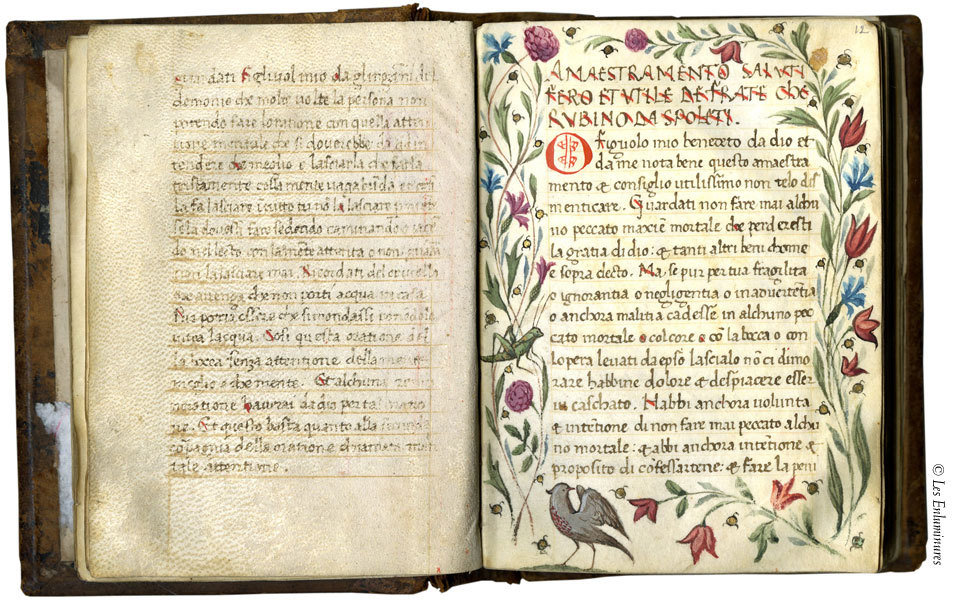 guardati figliuol mio da glinganni del
demonio che molte volte la persona non
potendo fare loratione con quella atten
tione mentale che si doverebbe da ad in
tendere che meglio e lasciarla che farla
tristamente colla mente vagabunda
la fa lasciare tu no la lasciare
caminando o iacē
do nel lecto con la mente attenta o non
con lasciare mai. Ricordati del crivella
che non porti acqua in casa
viva lacqua. Cosi questa oratione de
la bocca senza attentione della mente
meglio e che niente. Et alchuna
oratione haverai da dio per tal
ne. Et questo basta quanto alla
cōpagnia della oratione chiamata men
tale attentione.
12
AMAESTRAMENTO SALUTI
FERO ET UTILE DE FRATE CHE
RUBINO DA SPOLETI.
O figiuolo mio benedeto da dio et
da me nota bene questo amaestra
mento & consiglio utilissimo non telo dis
menticare. Guardati non fare mai alchu
no peccato maxime mortale che perderesti
la gratia di dio: & tanti altri beni chome
e sopra decto. Ma se pur per tua fragilita
o ignorantia o negligentia o inaduertētia
o anchora malitia cadesse in alchuno pec
cato mortale o col core o cō la bocca o con
lopera leuati da epso lascialo nō ci dimo
rare habbine dolore & despiacere esser
ui caschato. Habbi anchora volunta
& intētione di non fare mai peccato alchu
no mortale: & abbi anchora intētione &
proposito di cōfessartene: & fare la peni
© Les Enluminures